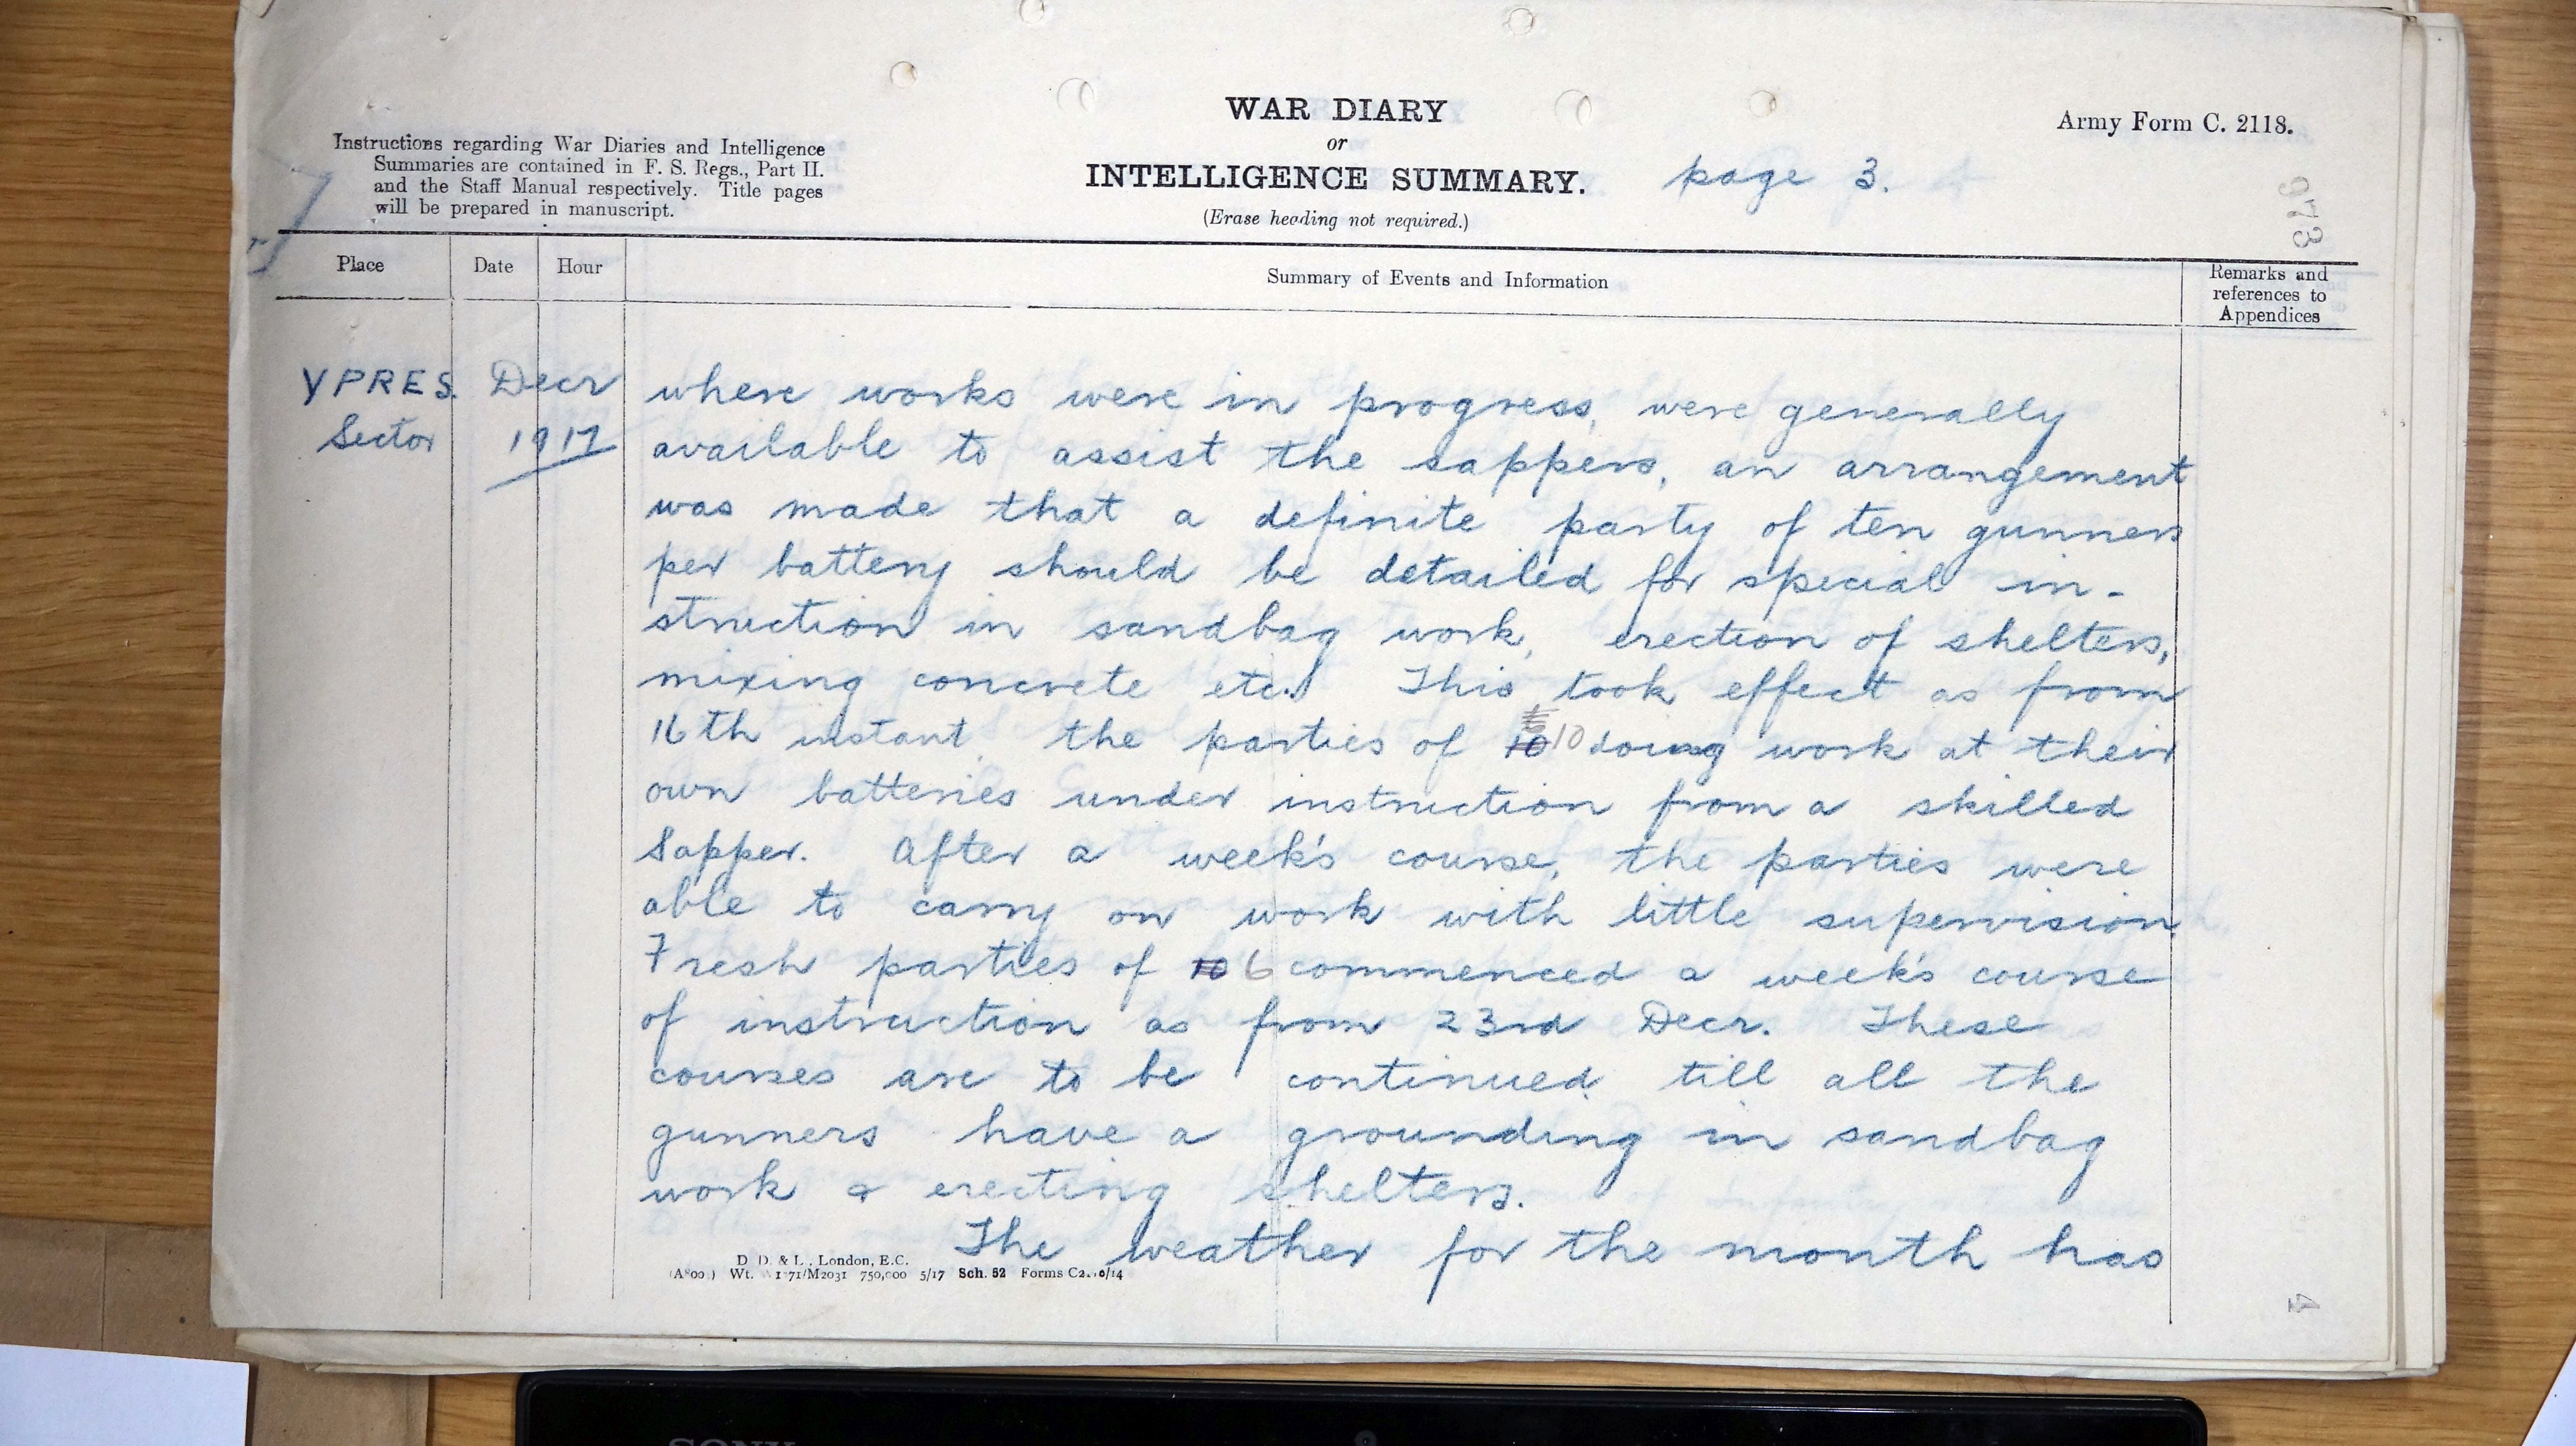 WAR DIARY
or
INTELLIGENCE SUMMARY.
(Erase heading not required.)
page 3.
Army Form C. 2118.
Instructions regarding War Diaries and Intelligence
Summaries are contained in F. S. Regs., Part II.
and the Staff Manual respectively. Title pages
will be prepared in manuscript.
973
Place
Date
Hour
Summary of Events and Information
Remarks and
references to
Appendices
YPRES.
Sector
Decr
1917
where works were in progress, were generally
available to assist the sappers, an arrangement
was made that a definite party of ten gunners
per battery should be detailed for special in-
struction in sandbag work, erection of shelters,
mixing concrete etc. This took effect as from
16th instant, the parties of 10 10 doing work at their
own batteries under instruction from a skilled
Sapper. After a week's course, the parties were
able to carry on work with little supervision.
Fresh parties of 10 6 commenced a week's course
of instruction as from 23rd Decr. These
courses are to be continued till all the
gunners have a grounding in sandbag
work & erecting shelters.
The weather for the month has
D. D. & L., London, E.C.
Wt. 750,000 5/17 Sch. 52 Forms
4
SONY